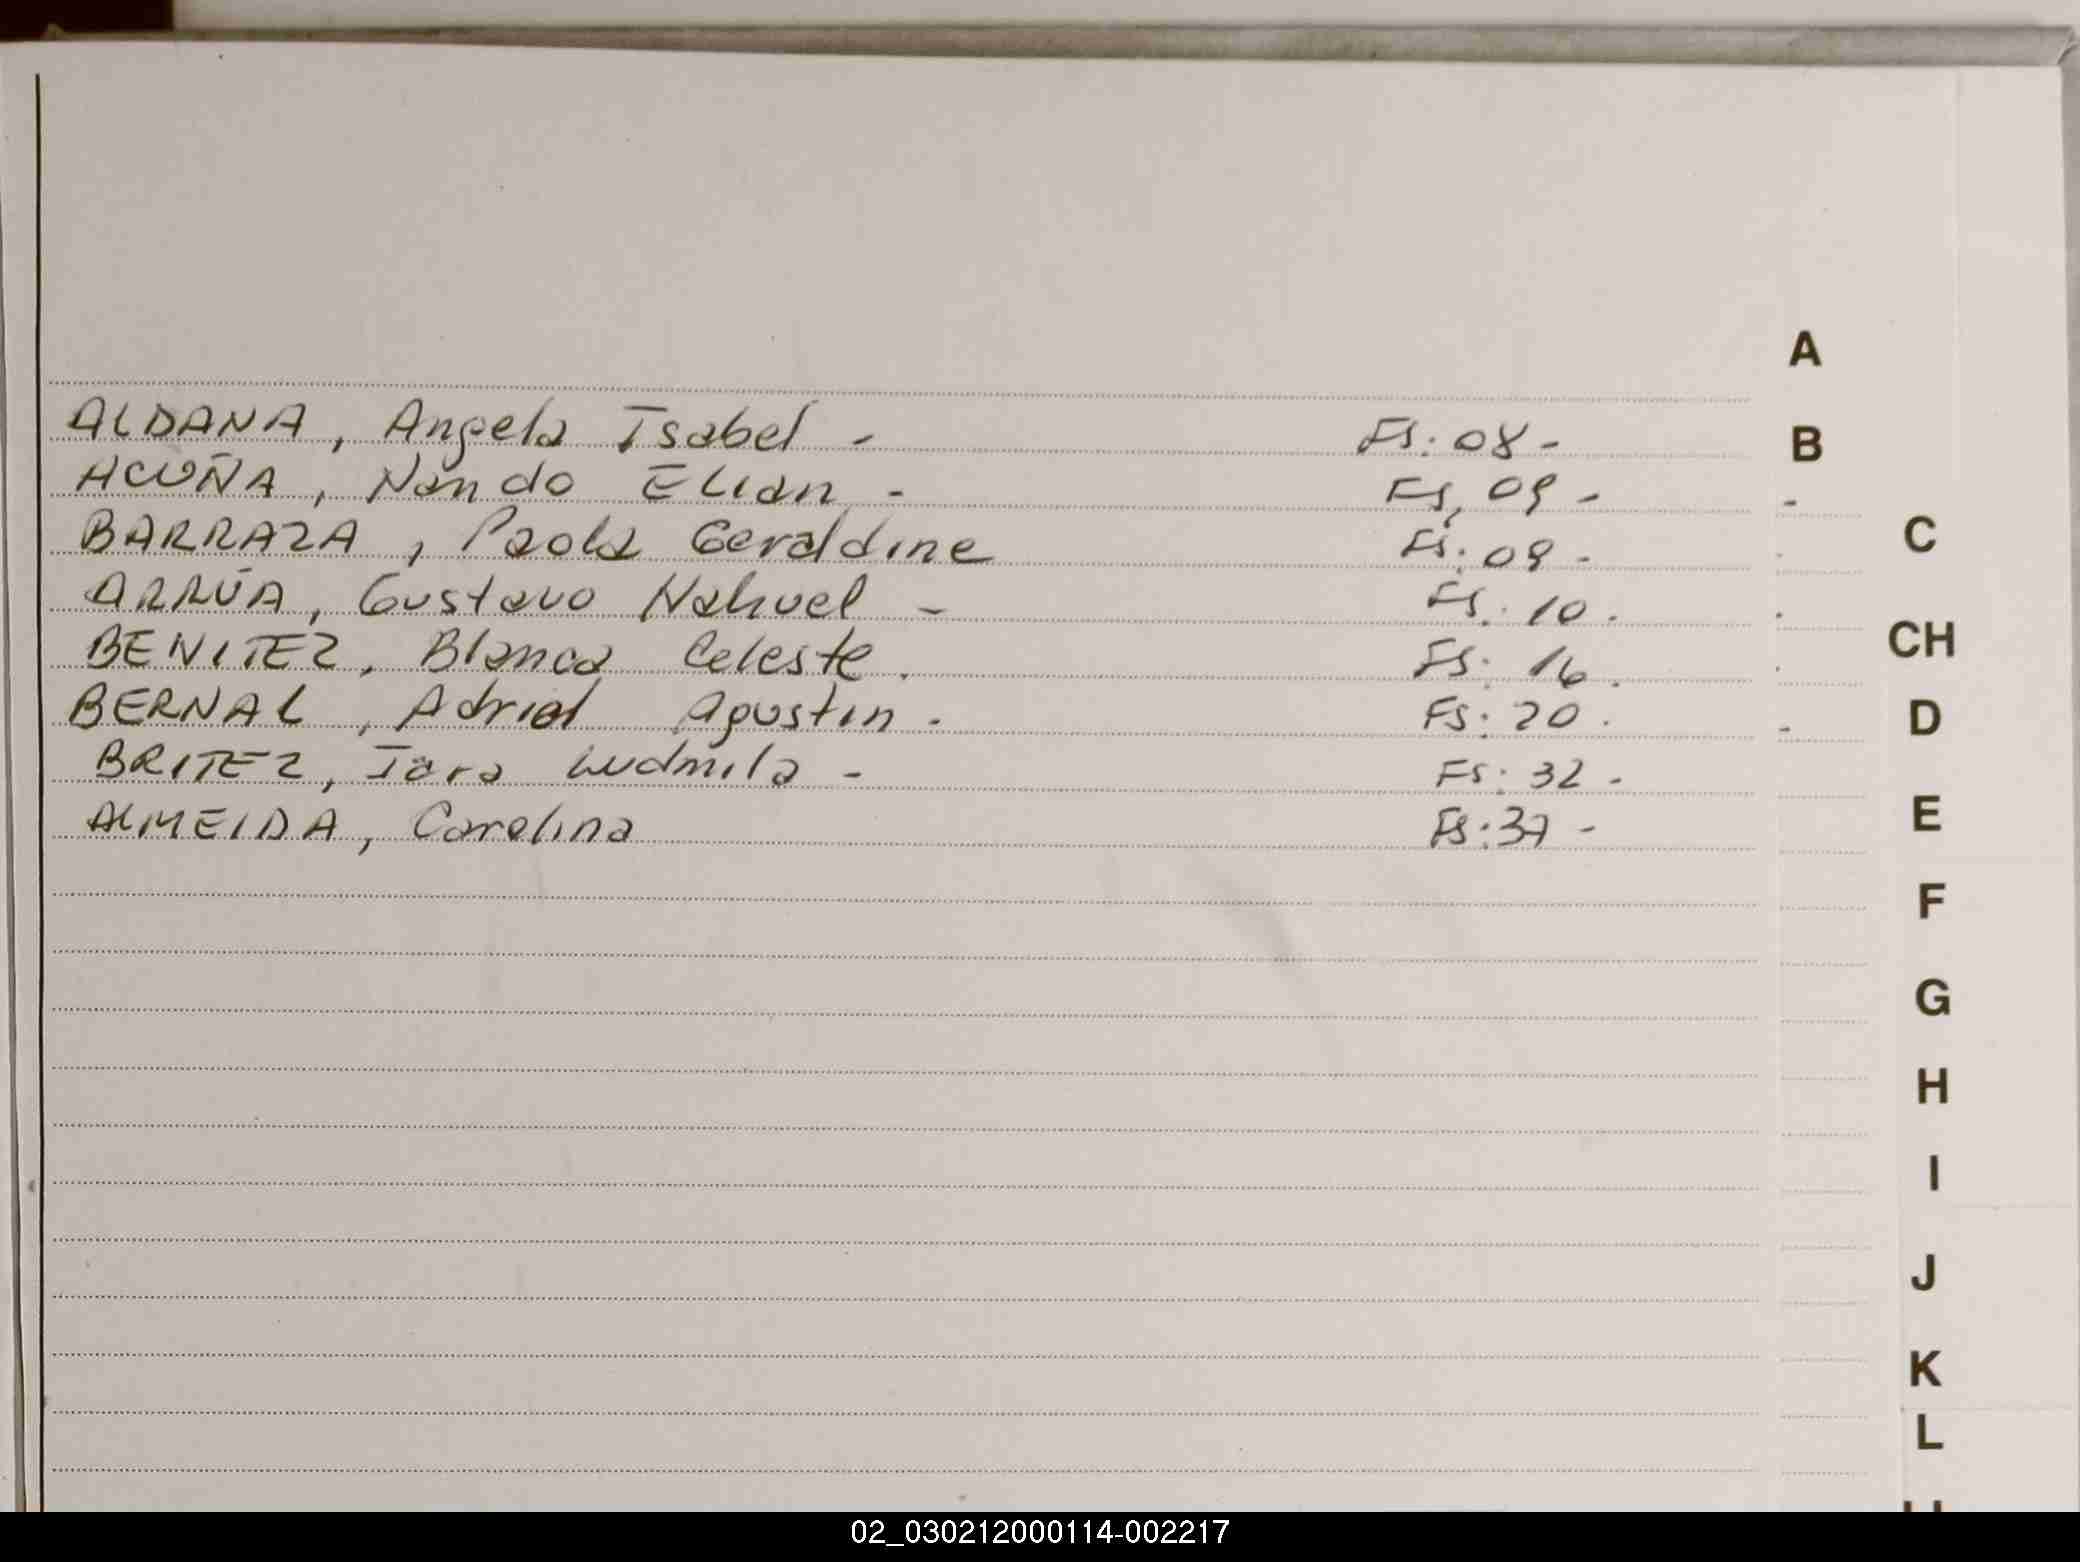 A
ALDANA, Angela Isabel - Fs: 08 -
B
ACUÑA, Nando ELian - Fs, 09 -
BARRAZA, Paola Geraldine Fs: 09 -
C
ARRÚA, Gustavo Nahuel - Fs: 10.
BENITEZ, Blanca Celeste. Fs: 16.
CH
BERNAL, Adriel Agustin. Fs: 20.
D
BRITEZ, Iara Ludmila - Fs: 32 -
ALMEIDA, Carolina Fs: 37 -
E
F
G
H
I
J
K
L
02_030212000114-002217